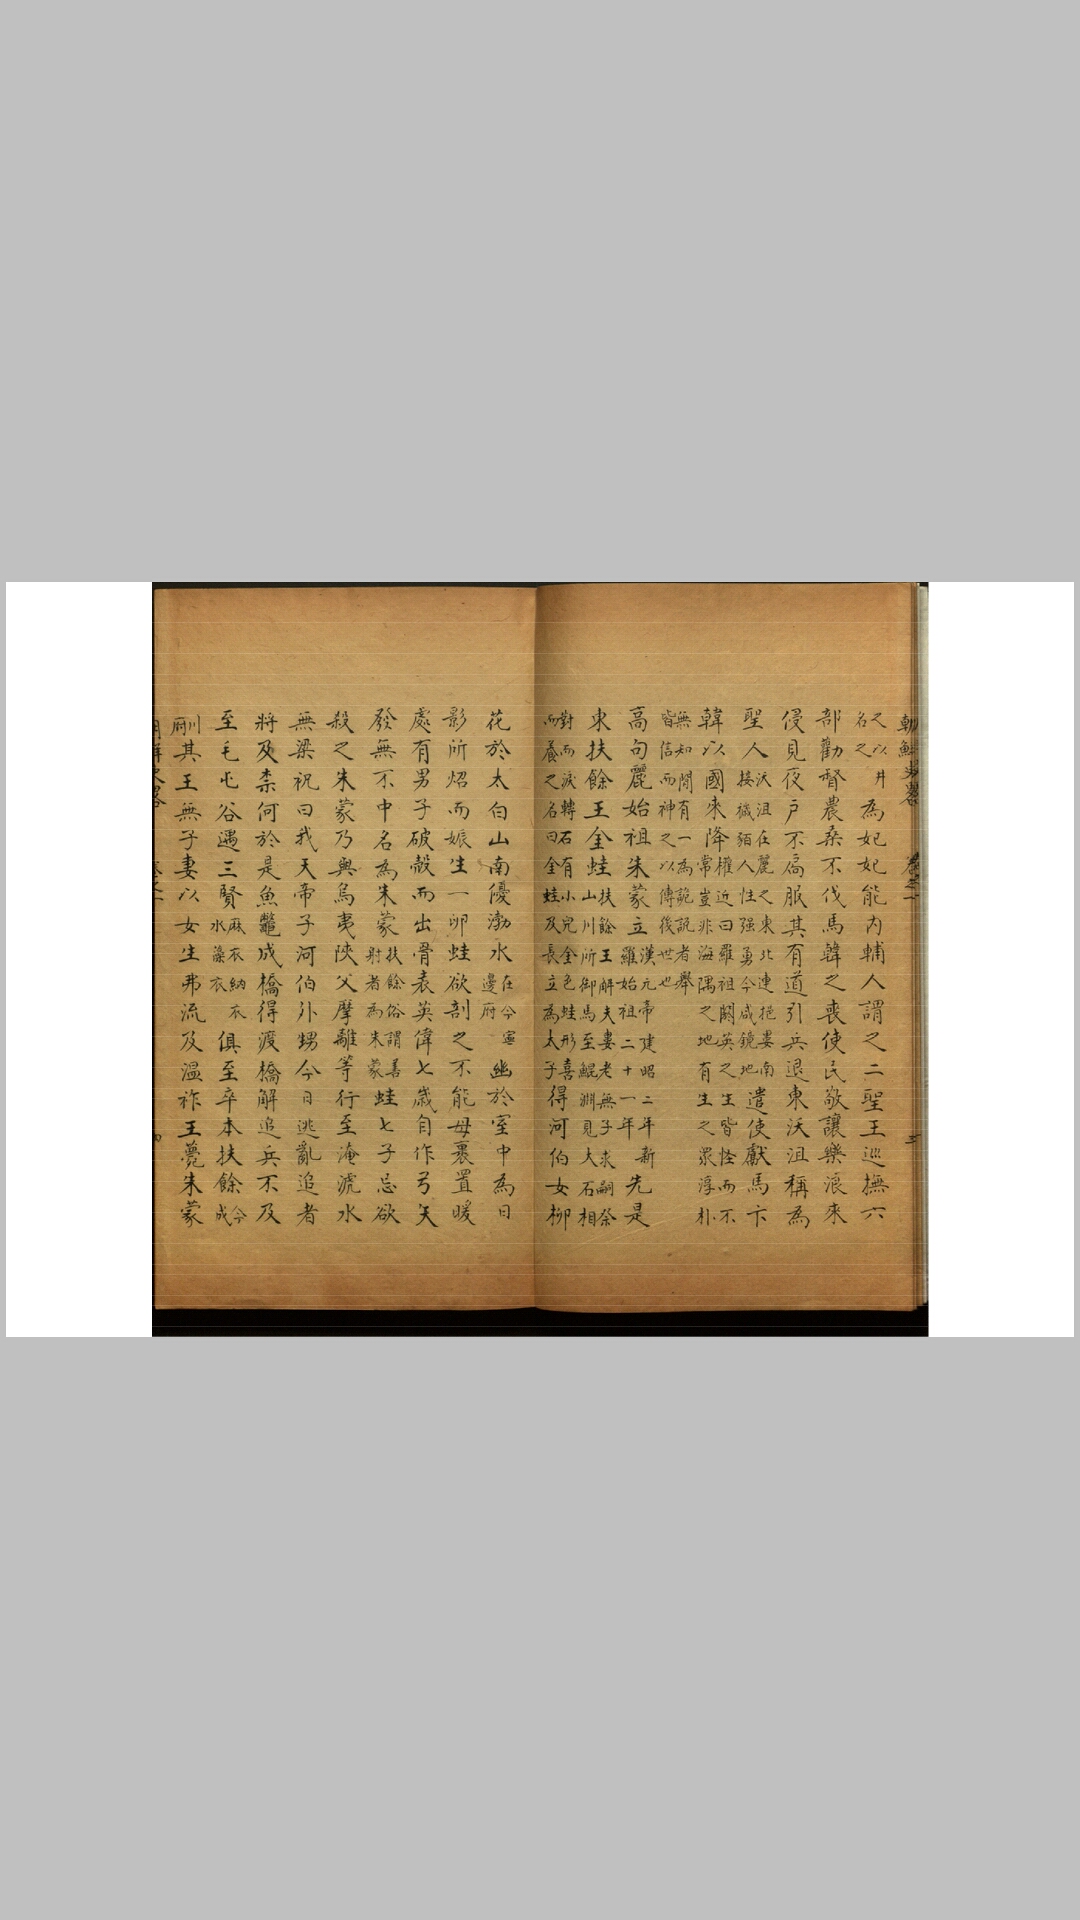 朝鮮史畧 卷之一 三
之以井
名之為妃妃能內輔人謂之二聖王巡撫六
部勸督農桑不伐馬韓之喪使民敬讓樂浪來
侵見夜戶不扃服其有道引兵退東沃沮稱為
聖人沃沮在麗之東北連挹婁南
接濊貊人性强勇今咸鏡地遣使獻馬卞
韓以國來降權近曰羅祖闕英之生皆怪而不
常豈非海隅之地有生之衆淳朴
無知間有一為詭說者舉
皆信而神之以傳後世也
高句麗始祖朱蒙立漢元帝建昭二年新
羅始祖二十一年先是
東扶餘王金蛙扶餘王解夫婁老無子求嗣祭
山川所御馬至鯤淵見大石相
對而淚轉石有小兒金色蛙形喜
而養之名曰金蛙及長立為太子得河伯女柳
花於太白山南優渤水在今寧
邊府幽於室中為日
影所炤而娠生一卵蛙欲剖之不能母裹置暖
處有男子破殼而出骨表英偉七歲自作弓矢
發無不中名為朱蒙扶餘俗謂善
射者為朱蒙蛙七子忌欲
殺之朱蒙乃與烏夷陜父摩離等行至淹淲水
無梁祝曰我天帝子河伯外甥今日逃亂追者
將及柰何於是魚鼈成橋得渡橋解追兵不及
至毛屯谷遇三賢麻衣納衣
水藻衣俱至卒本扶餘今
成
川
府其王無子妻以女生弗流及溫祚王薨朱蒙